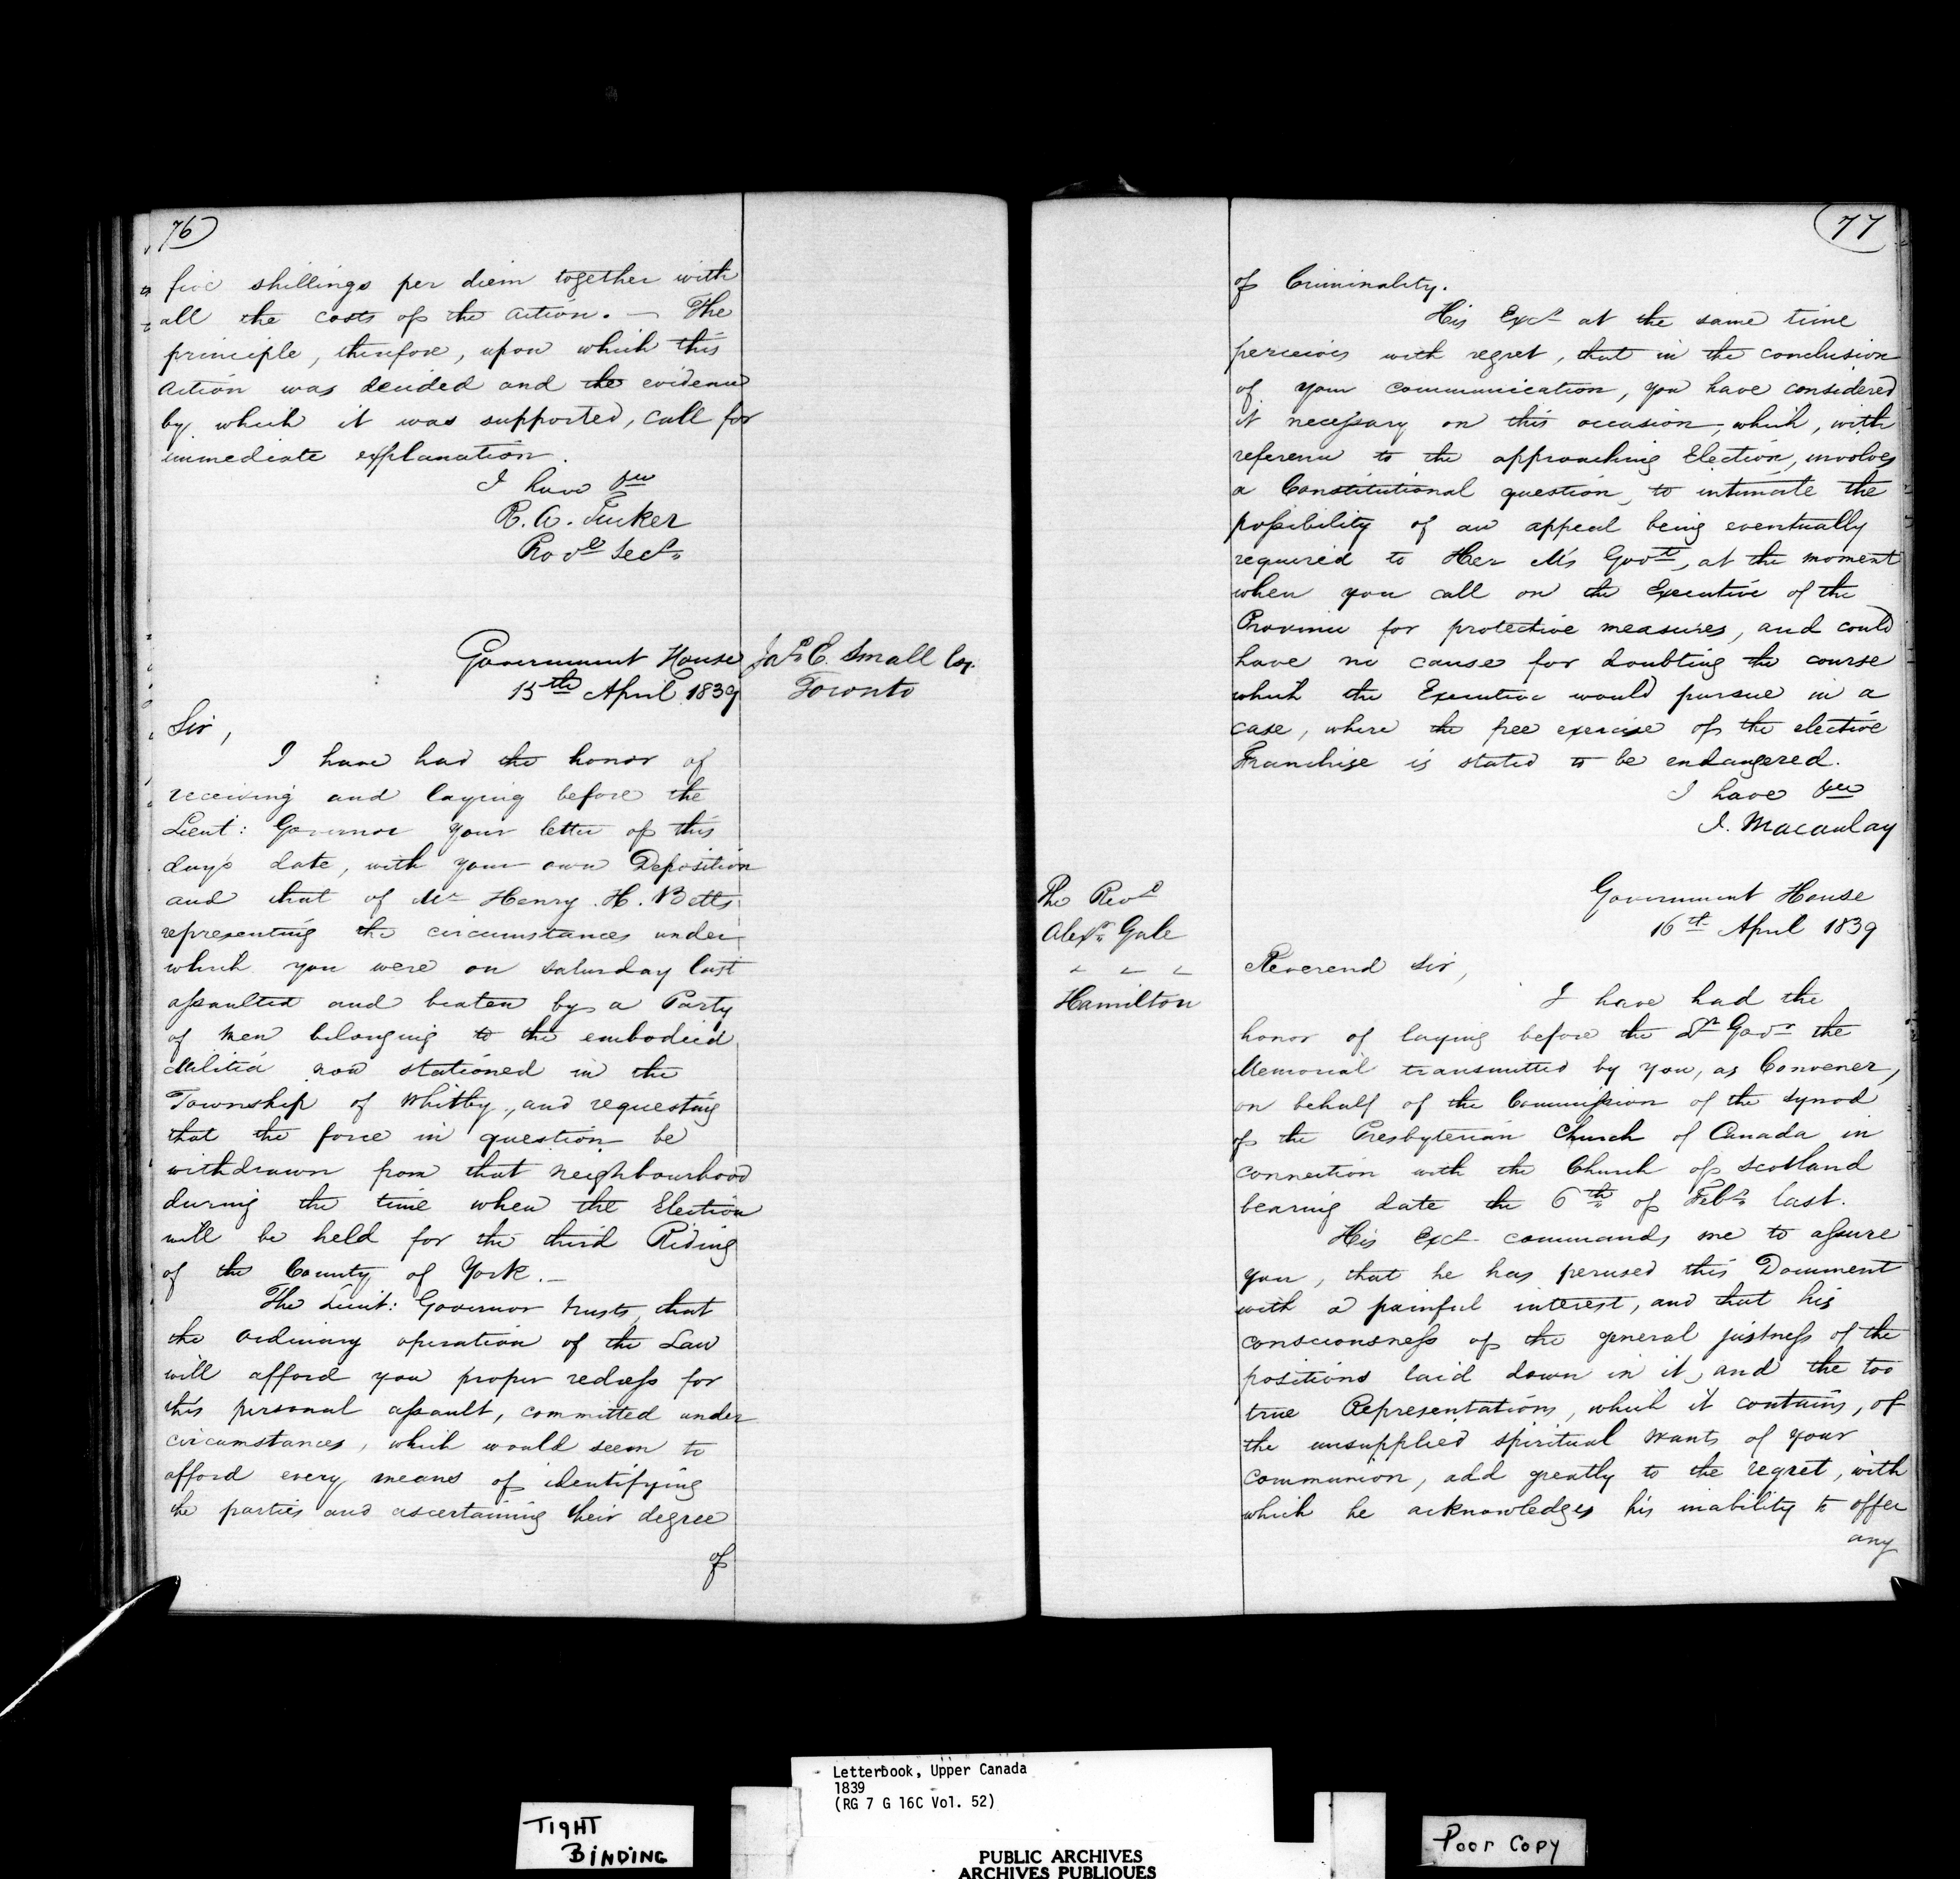 76
five shillings per diem together with
all the costs of the action. — The
principle, therefore, upon which this
action was decided and the evidence
by which it was supported, call for
immediate explanation.
I have &c
R. A. Tucker
Provl Secy
Government House
15th April 1839
Jas E. Small Esq.
Toronto
Sir,
I have had the honor of
receiving and laying before the
Lieut: Governor your letter of this
day's date, with your own Deposition
and that of Mr Henry H. Betts
representing the circumstances under
which you were on Saturday last
assaulted and beaten by a Party
of Men belonging to the embodied
Militia now stationed in the
Township of Whitby, and requesting
that the force in question be
withdrawn from that neighbourhood
during the time when the Election
will be held for the third Riding
of the County of York. —
The Lieut: Governor trusts, that
the ordinary operation of the Law
will afford you proper redress for
this personal assault, committed under
circumstances, which would seem to
afford every means of identifying
the parties and ascertaining their degree
of
77
of Criminality.
His Excy at the same time
perceives with regret, that in the conclusion
of your communication, you have considered
it necessary on this occasion, which, with
reference to the approaching Election, involves
a Constitutional question, to intimate the
possibility of an appeal being eventually
required to Her M's Govt, at the moment
when you call on the Executive of the
Province for protective measures, and could
have no cause for doubting the course
which the Executive would pursue in a
case, where the free exercise of the elective
Franchise is stated to be endangered.
I have &c
J. Macaulay
The Revd
Alexr Gale
Hamilton
Government House
16th April 1839
Reverend Sir,
I have had the
honor of laying before the Lt Govr the
Memorial transmitted by you, as Convener,
on behalf of the Commission of the Synod
of the Presbyterian Church of Canada in
connection with the Church of Scotland
bearing date the 6th of Feby last.
His Excy commands me to assure
you, that he has perused this Document
with a painful interest, and that his
consciousness of the general justness of the
positions laid down in it, and the too
true Representations, which it contains, of
the unsupplied spiritual wants of your
communion, add greatly to the regret, with
which he acknowledges his inability to offer
any
Letterbook, Upper Canada
1839
(RG 7 G 16C Vol. 52)
TIGHT
BINDING
PUBLIC ARCHIVES
ARCHIVES PUBLIQUES
Poor Copy